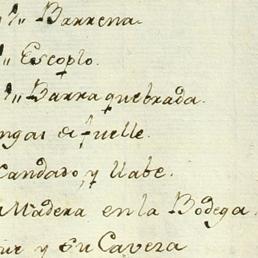 1/u Barrena.
/u Escoplo.
1/u Barra quebrada.
ngas de fuelle.
Candado, y Llabe.
Madera en la Bodega.
y su Caveza